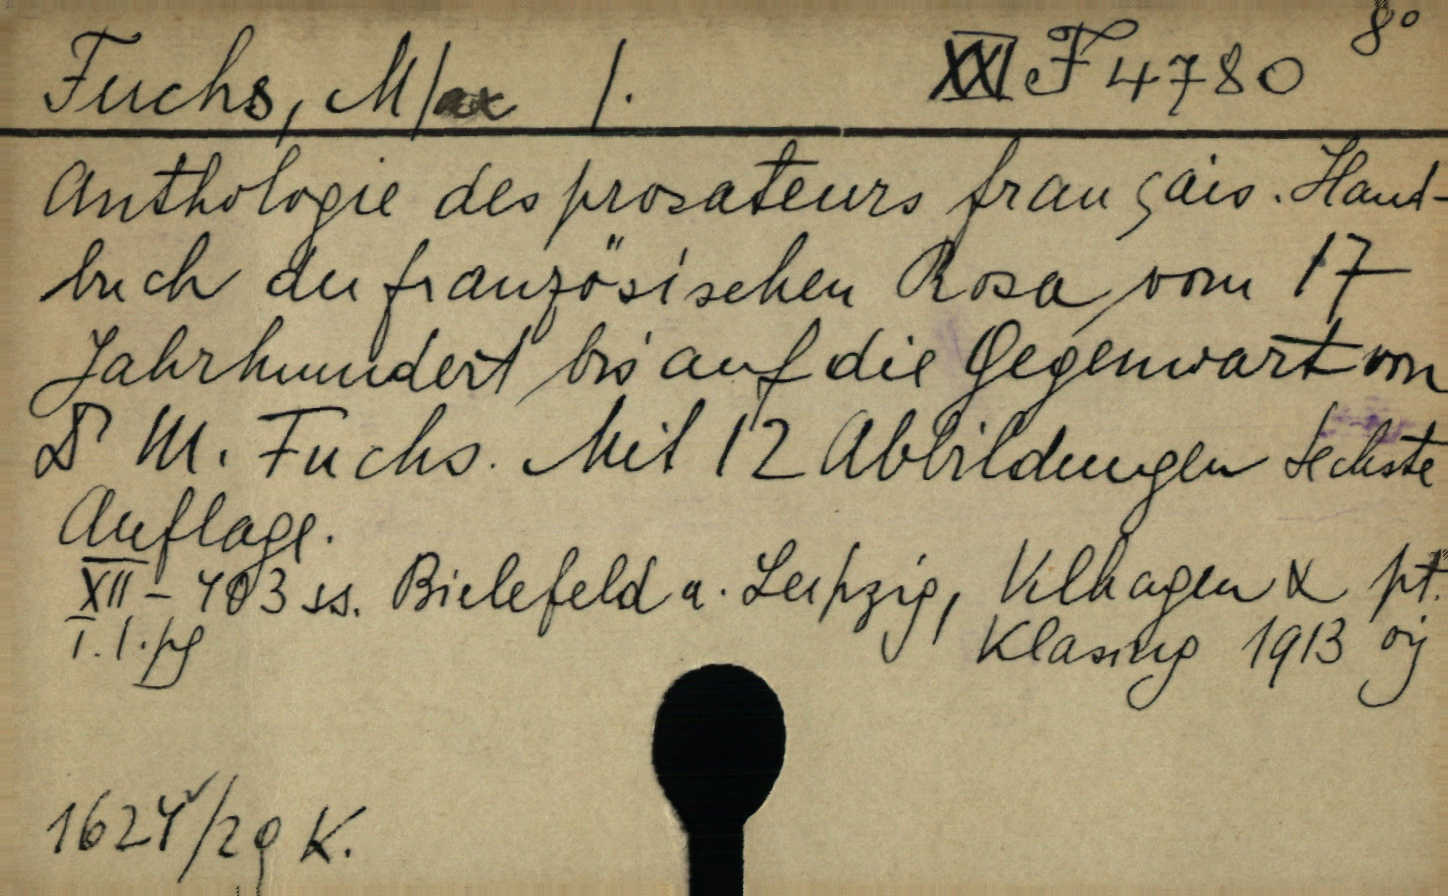 Fuchs, Max 1. XXI F 4780 8°
Anthologie des prosateurs français. Hand-
buch der französischen Prosa vom 17
Jahrhundert bis auf die Gegenwart von
Dr M. Fuchs. Mit 12 Abbildungen Sechste
Auflage.
XII - 403 ss. Bielefeld u. Leipzig, Velhagen & pt.
1. l. pg Klasing 1913
1624/29 K.